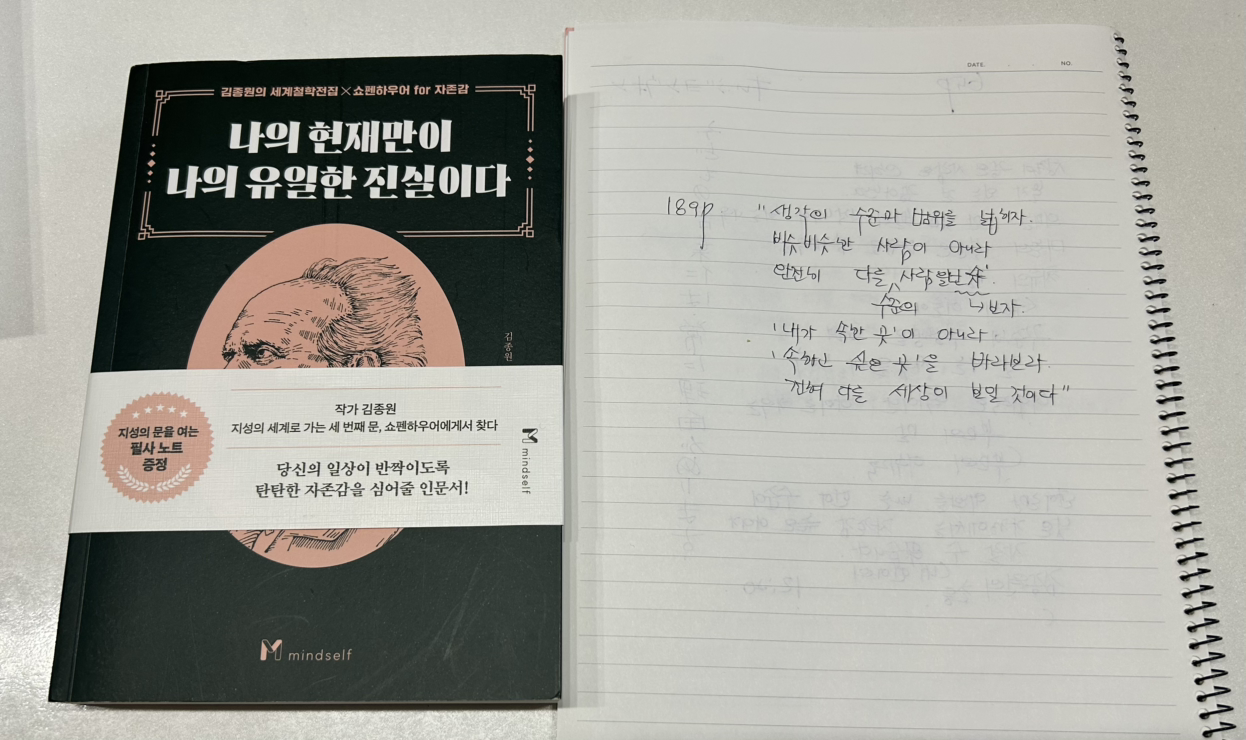 김종원의 세계철학전집×쇼펜하우어 for 자존감
나의 현재만이
나의 유일한 진실이다
김종원
지성의 문을 여는
필사 노트
증정
작가 김종원
지성의 세계로 가는 세 번째 문, 쇼펜하우어에게서 찾다
당신의 일상이 반짝이도록
탄탄한 자존감을 심어줄 인문서!
mindself
mindself
DATE. NO.
189p
"생각의 수준과 범위를 넓히자.
비슷비슷한 사람이 아니라
완전히 다른 사람을 만나
수준의 보자.
'내가 속한 곳'이 아니라
'속하고 싶은 곳'을 바라보라.
전혀 다른 세상이 보일 것이다"